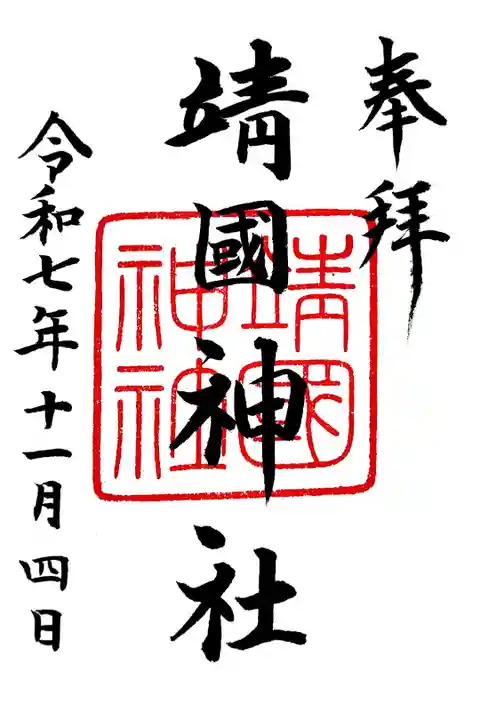 奉拝
靖國神社
靖國神社
令和七年十一月四日